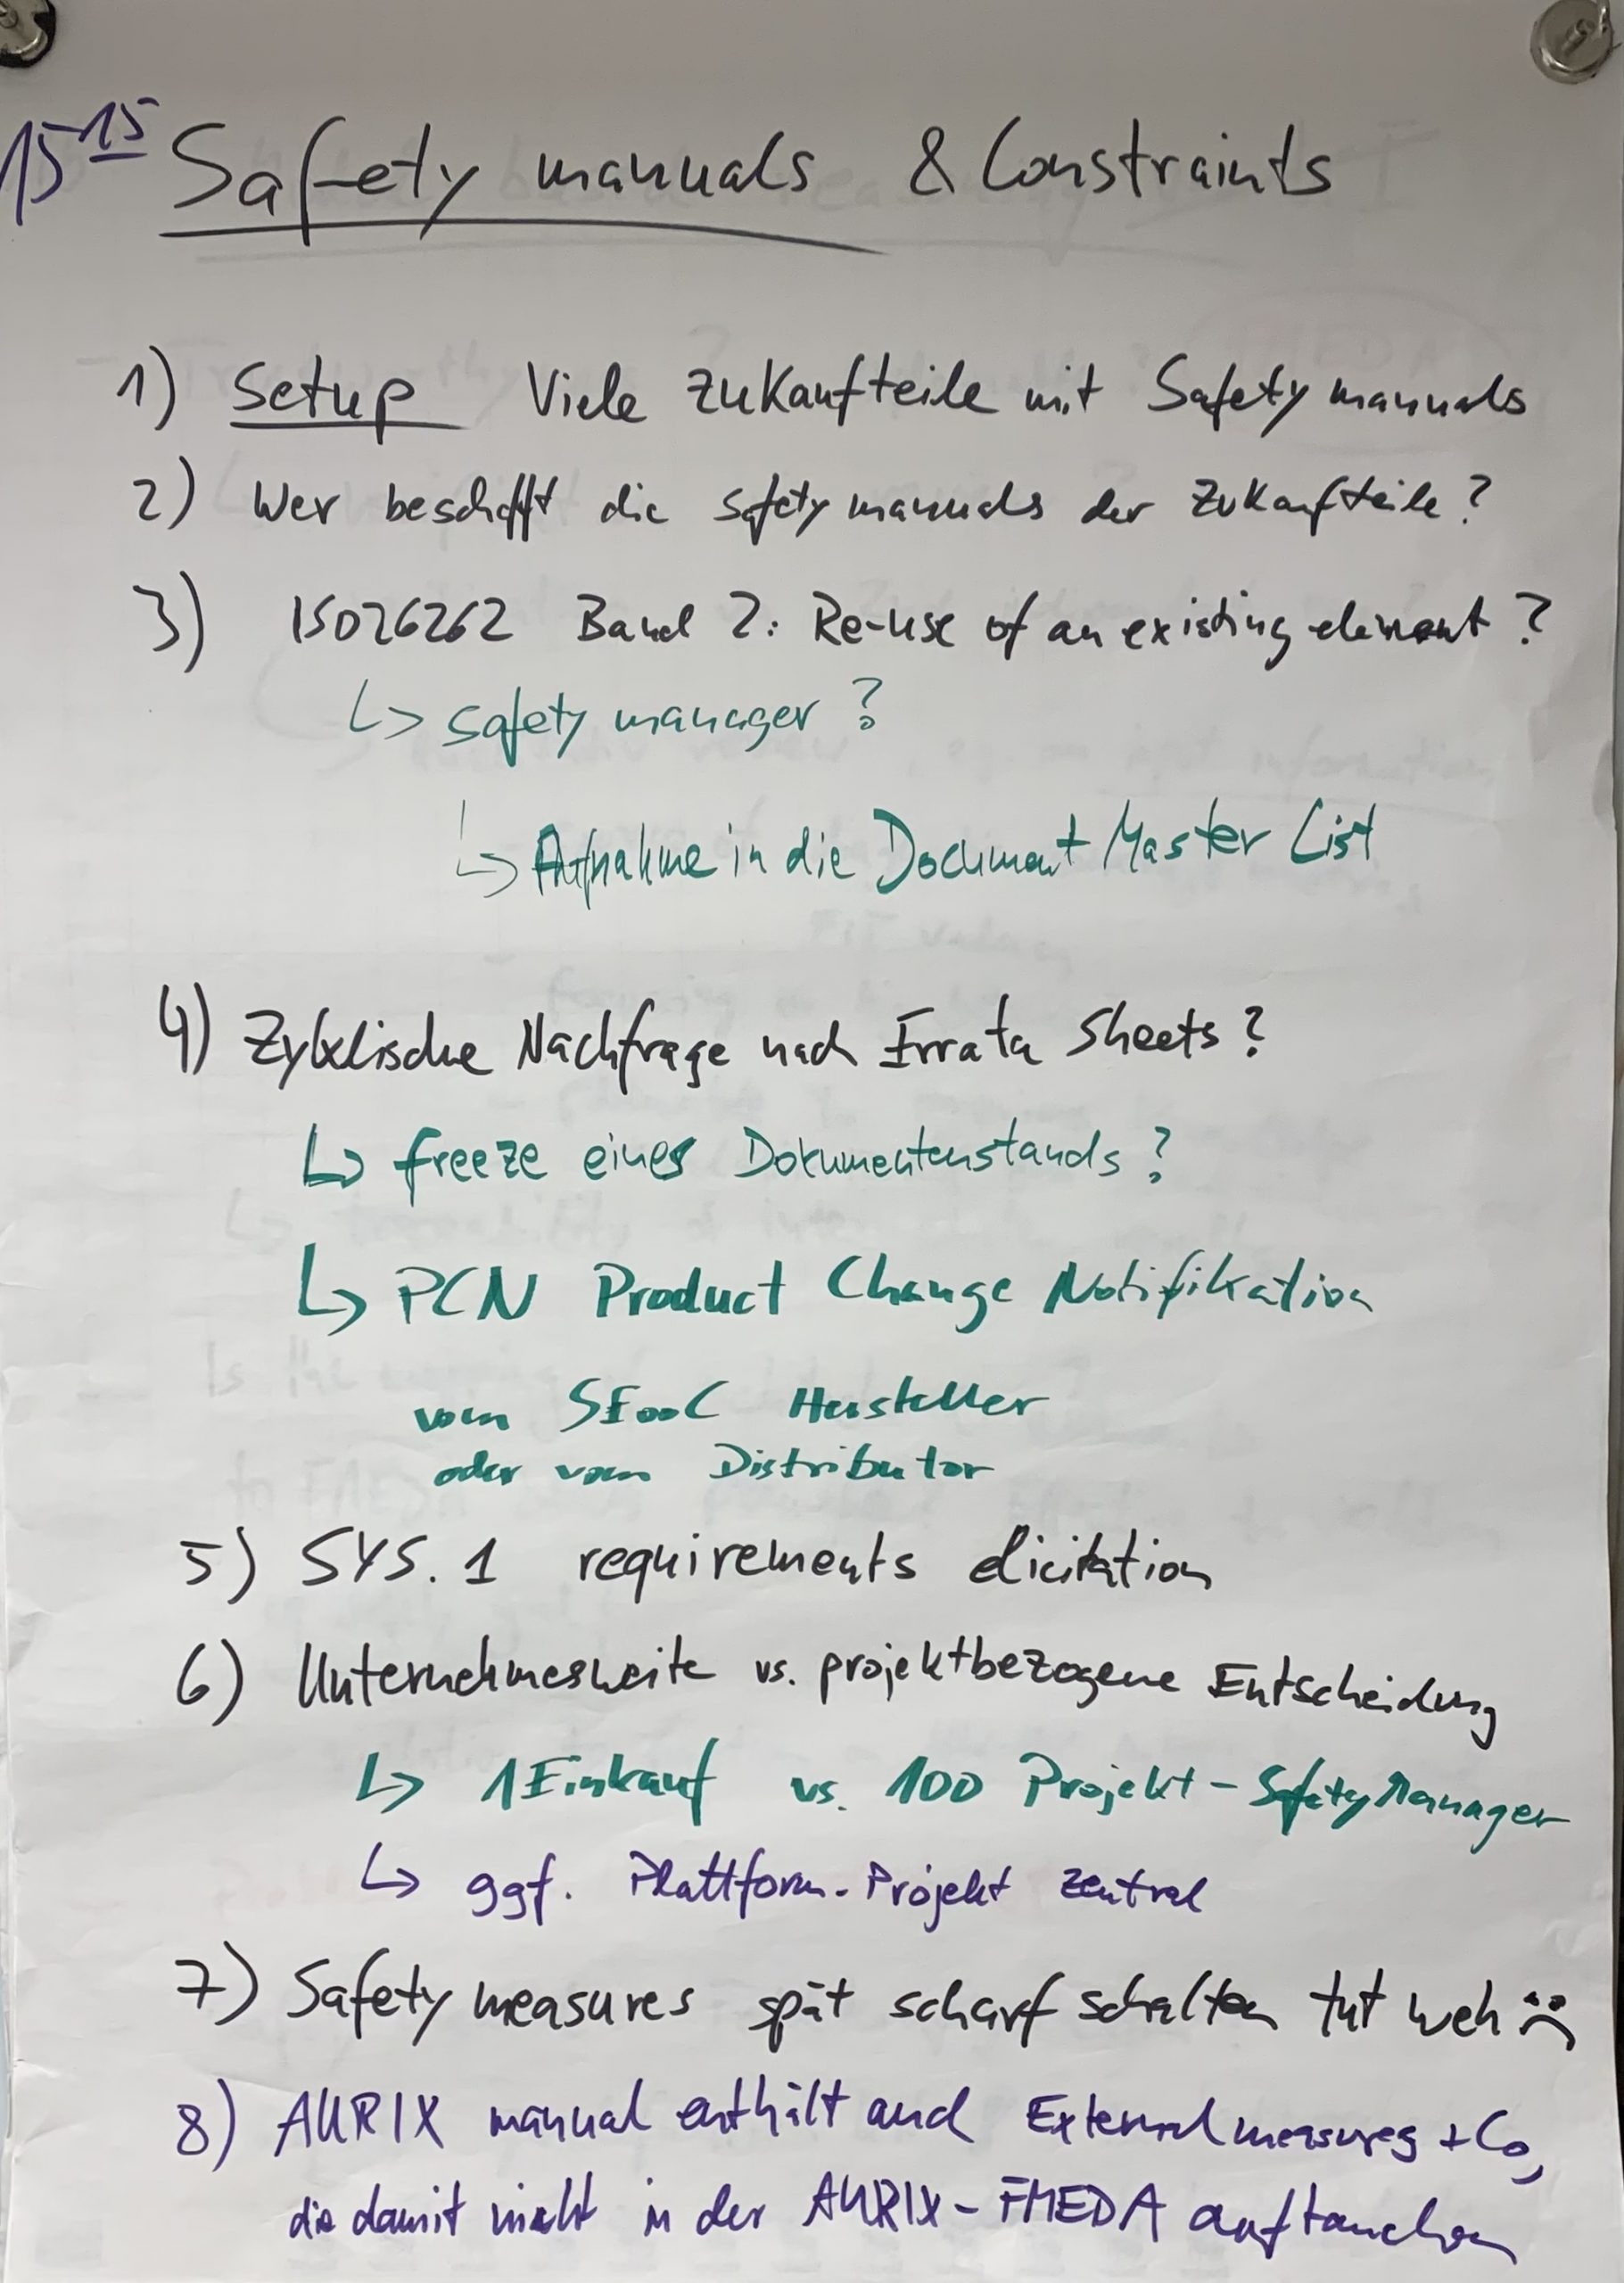 15 15 Safety manuals & Constraints
1) Setup Viele Zukaufteile mit Safety manuals
2) Wer beschafft die safety manuals der Zukaufteile?
3) ISO26262 Band 2: Re-use of an existing element?
↳ safety manager?
↳ Aufnahme in die Document Master List
4) Zyklische Nachfrage nach Errata Sheets?
↳ freeze eines Dokumentenstands?
↳ PCN Product Change Notifikation
vom SEooC Hersteller
oder vom Distributor
5) SYS.1 requirements elicitation
6) Unternehmesweite vs. projektbezogene Entscheidung
↳ 1 Einkauf vs. 100 Projekt-Safety Manager
↳ ggf. Plattform-Projekt zentral
7) Safety measures spät scharf schalten tut weh ☹
8) AURIX manual enthält auch External measures + Co,
die damit nicht in der AURIX-FMEDA auftauchen